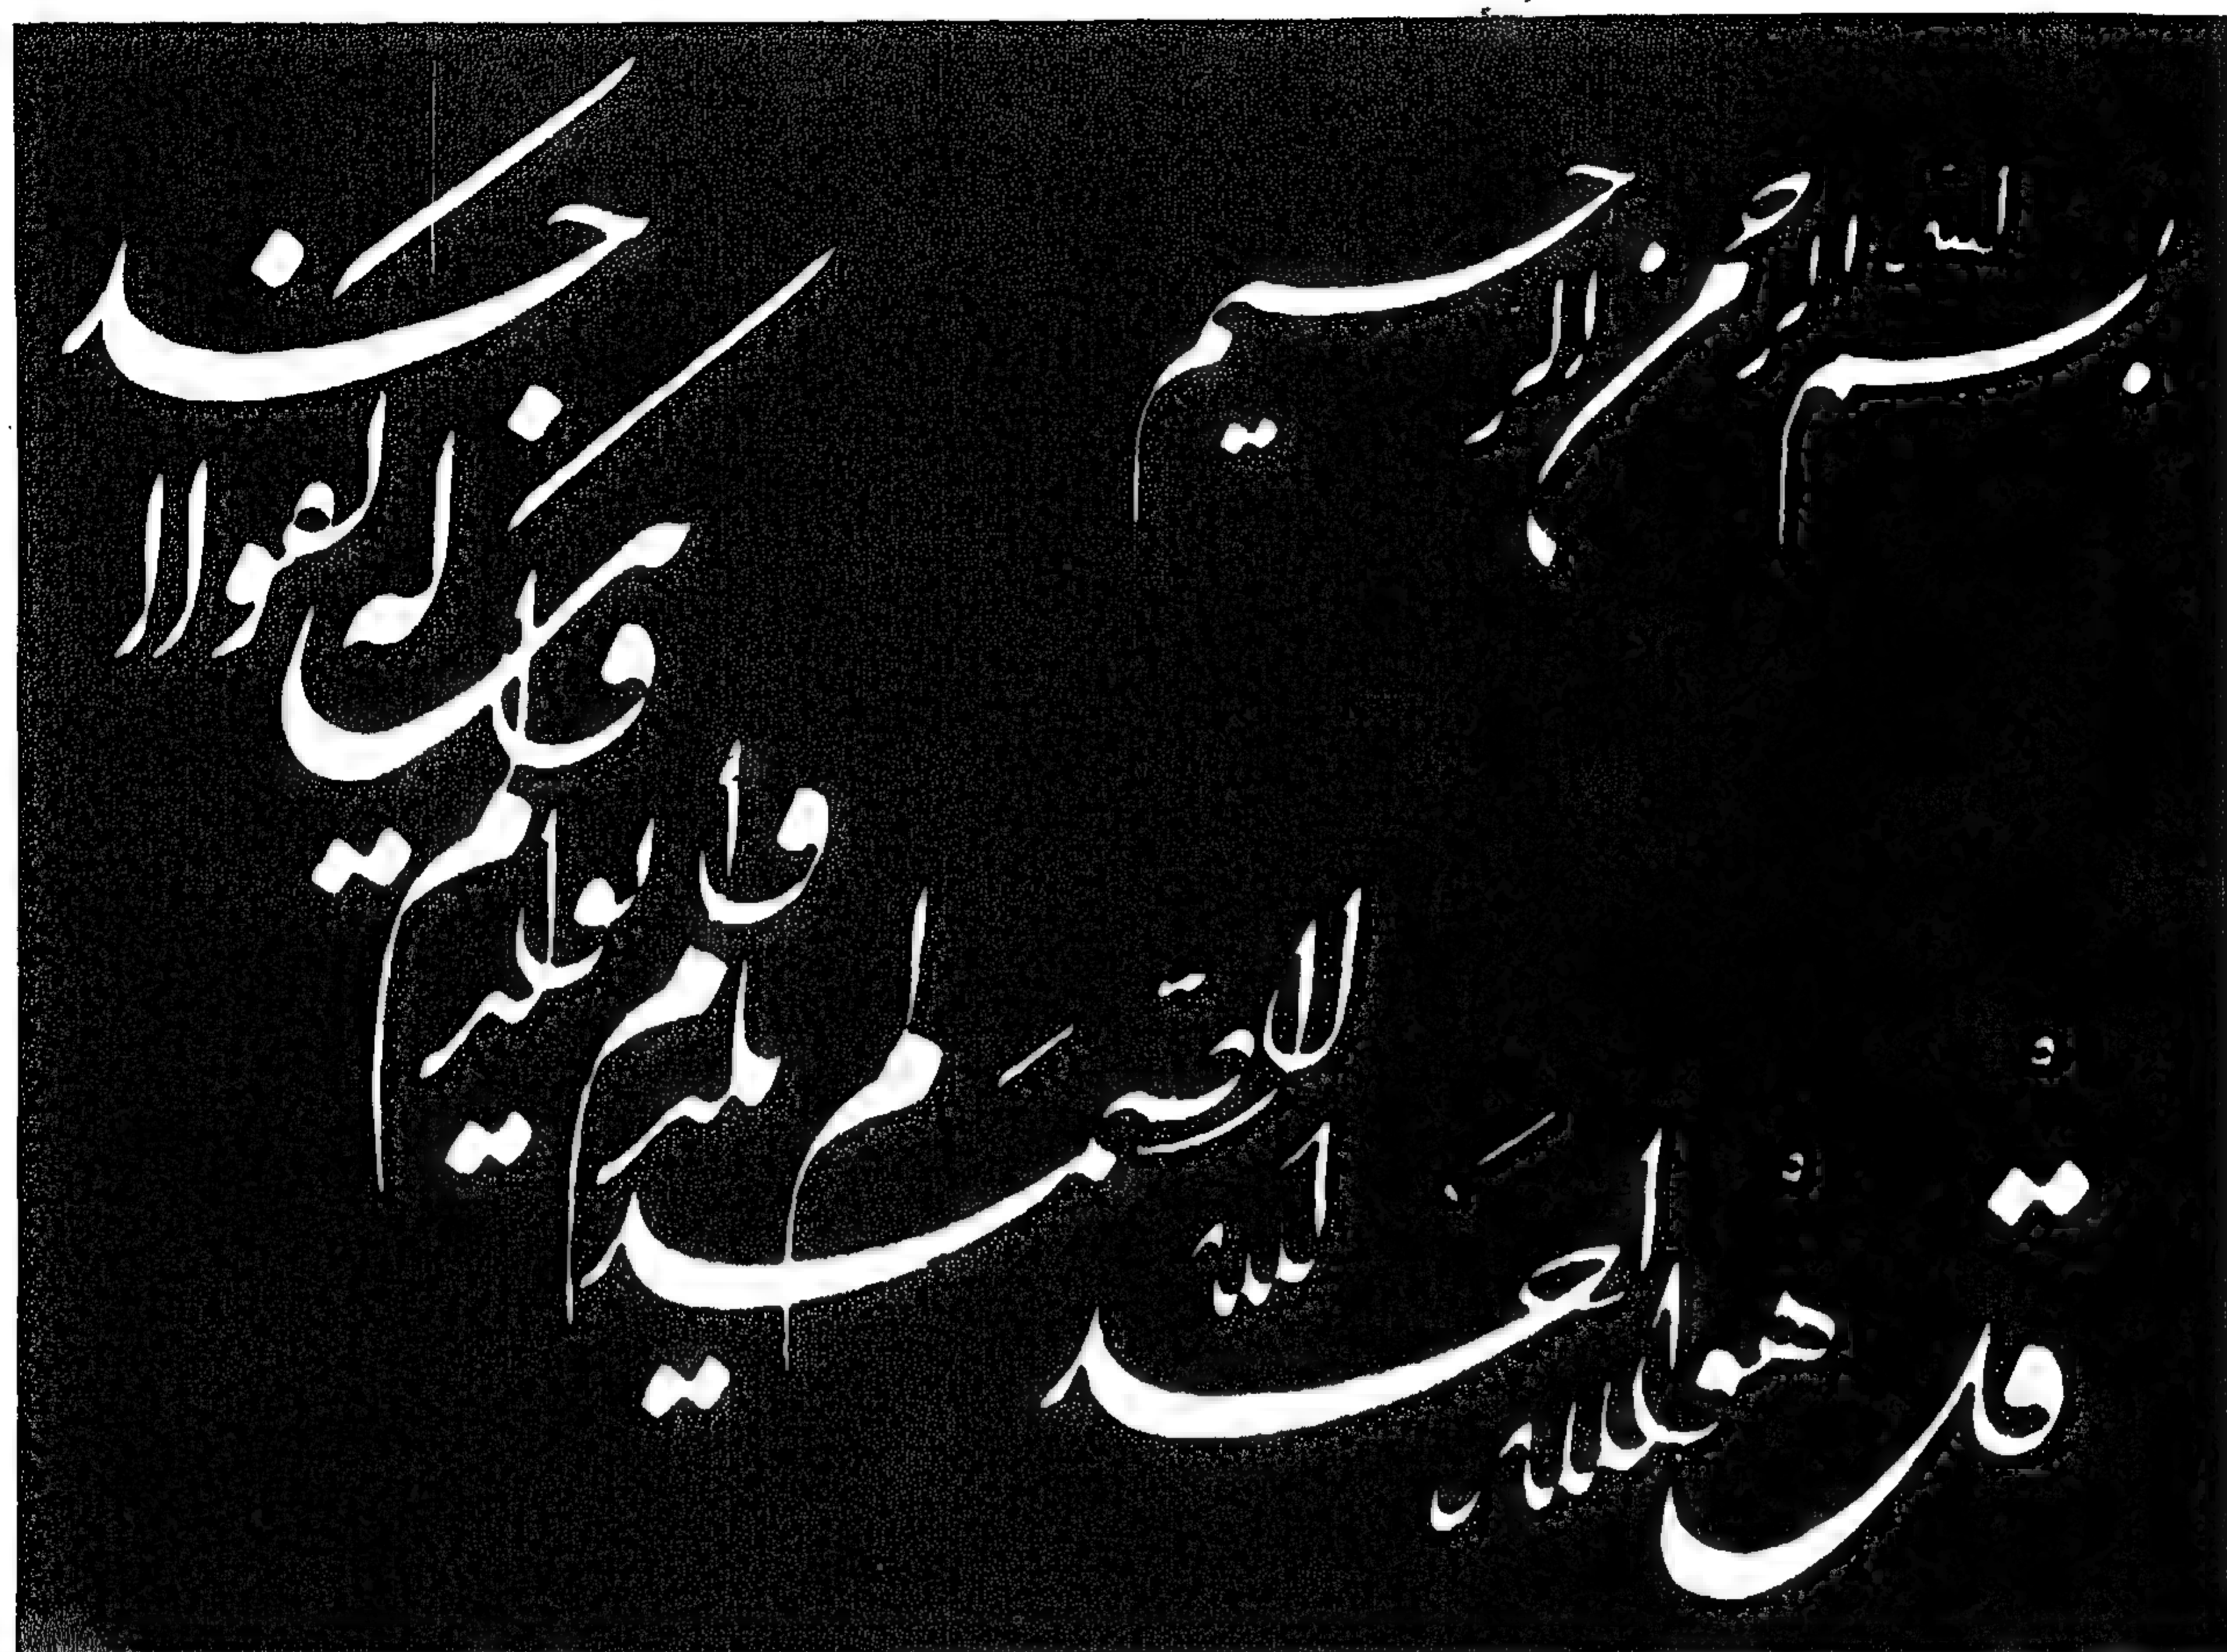 بسم الله الرحمن الرحيم
قُل هُو الله احد
الله الصمد
لم يلد
ولم يولد
ولم يكن
له كفوا احد